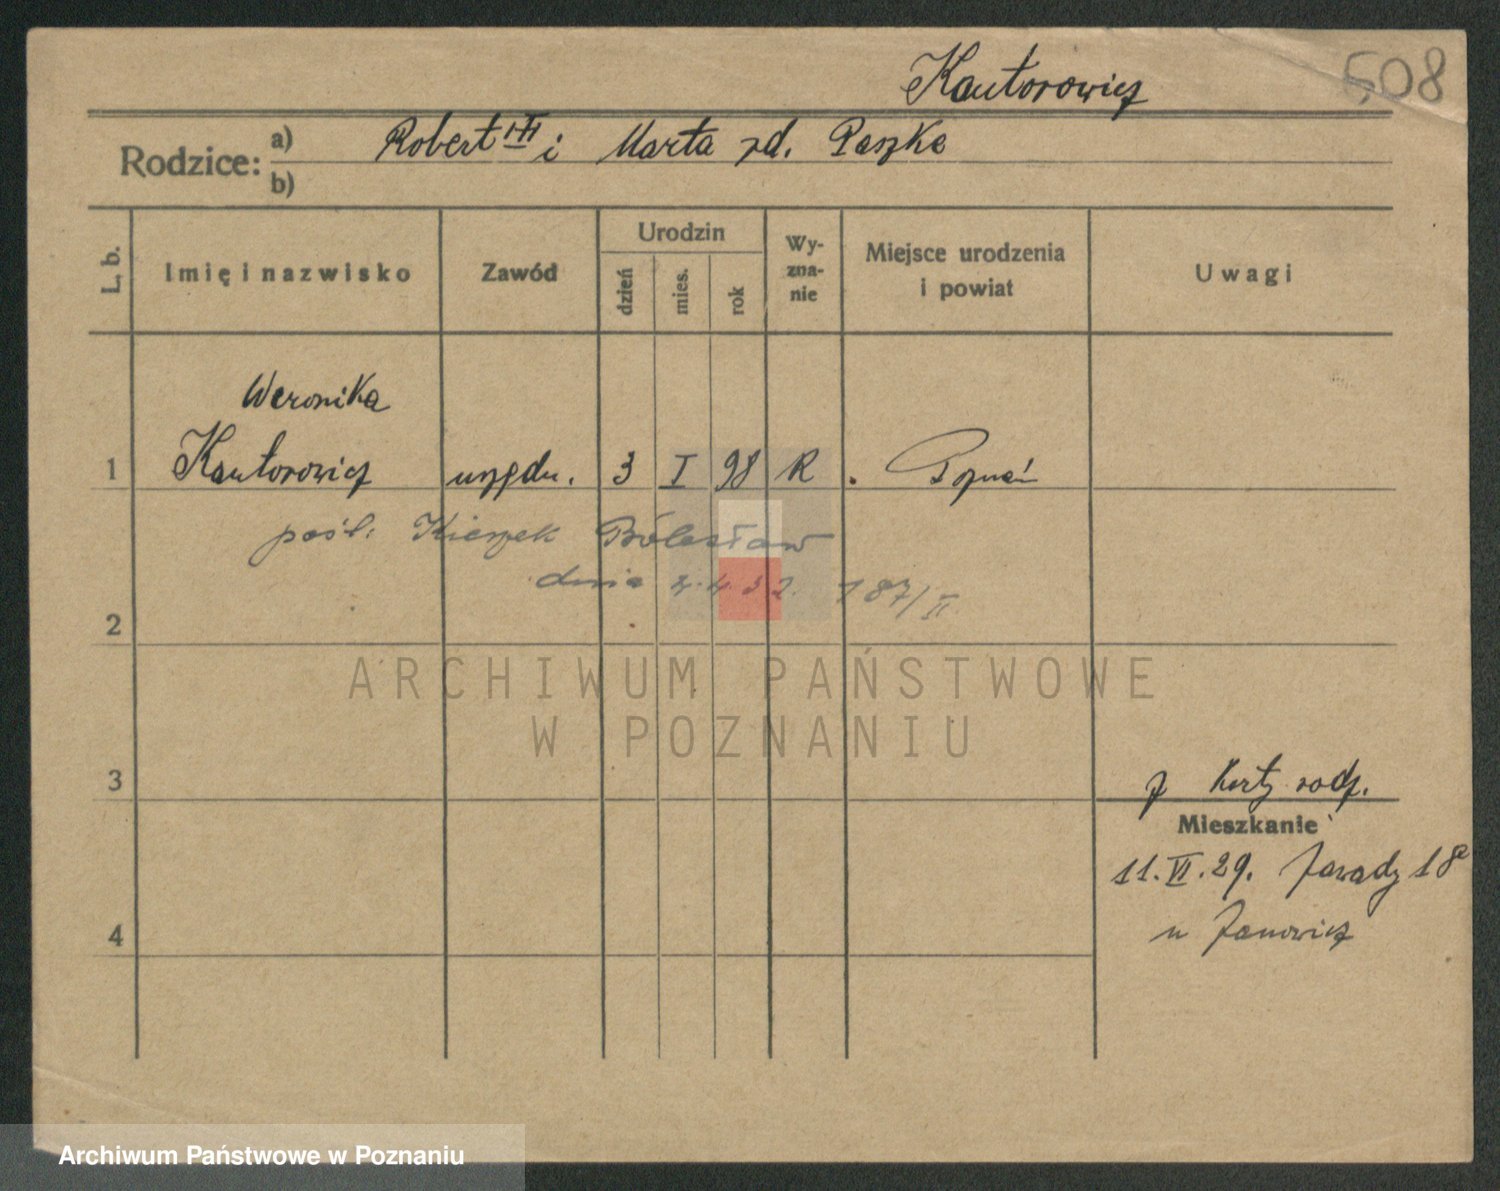 Kantorowicz
508
Rodzice:
a) Robert i Marta zd. Paszke
b)
L. b.
Imię i nazwisko
Zawód
Urodzin
dzień
mies.
rok
Wy-
zna-
nie
Miejsce urodzenia
i powiat
Uwagi
Weronika
1 Kantorowicz urzędn. 3 I 98 R. Poznań
pośl. Kierzek Bolesław
dnia 2.4.32. 187/II
2
ARCHIWUM PAŃSTWOWE
W POZNANIU
3
z Karty rodz.
Mieszkanie
11.VI.29. Zawady 18
u Janowicz
4
Archiwum Państwowe w Poznaniu